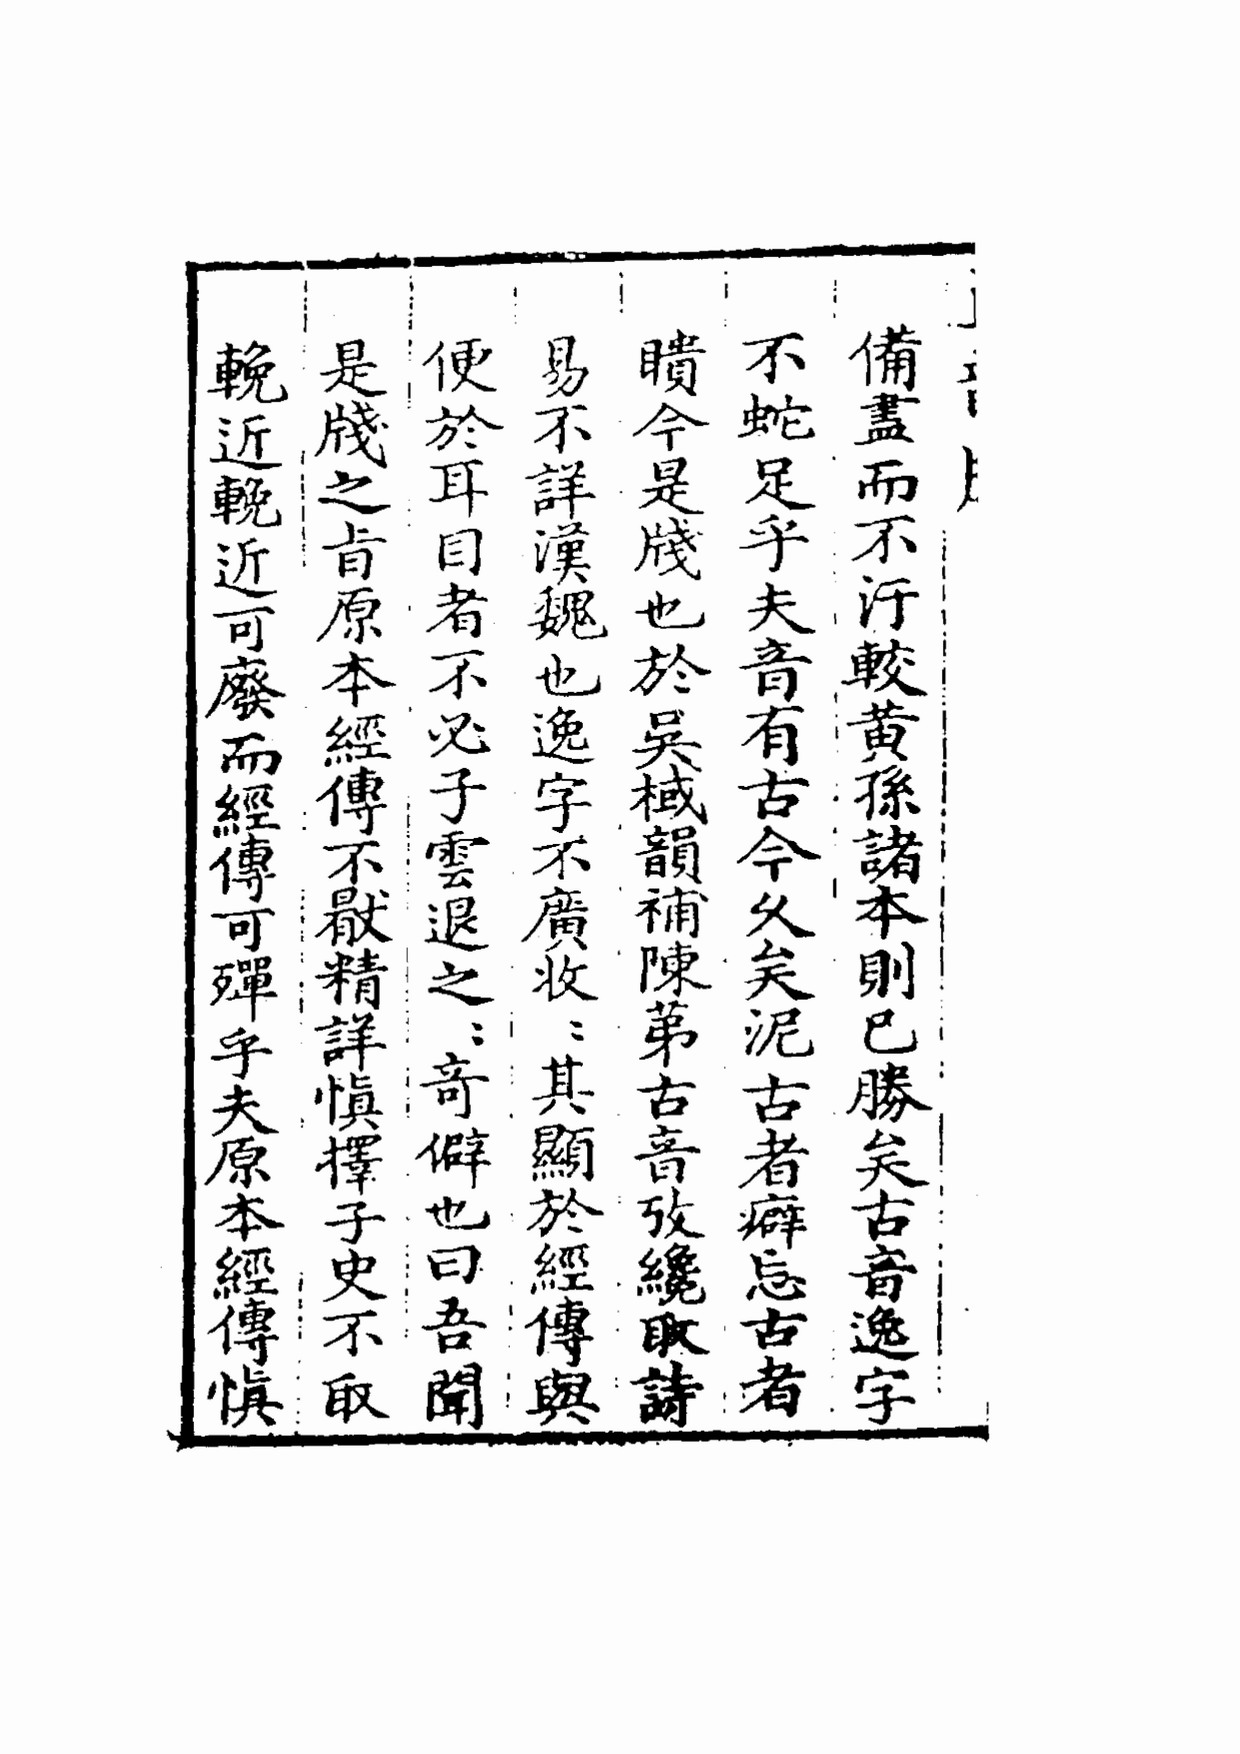 備盡而不汙較黄孫諸本則已勝矣古音逸字
不蛇足乎夫音有古今久矣泥古者癖忘古者
瞶今是牋也於吳棫韻補陳苐古音攷纔取詩
易不詳漢魏也逸字不廣收〻其顯於經傳與
便於耳目者不必子雲退之〻奇僻也曰吾聞
是牋之旨原本經傳不猒精詳慎擇子史不取
輓近輓近可廢而經傳可殫乎夫原本經傳慎